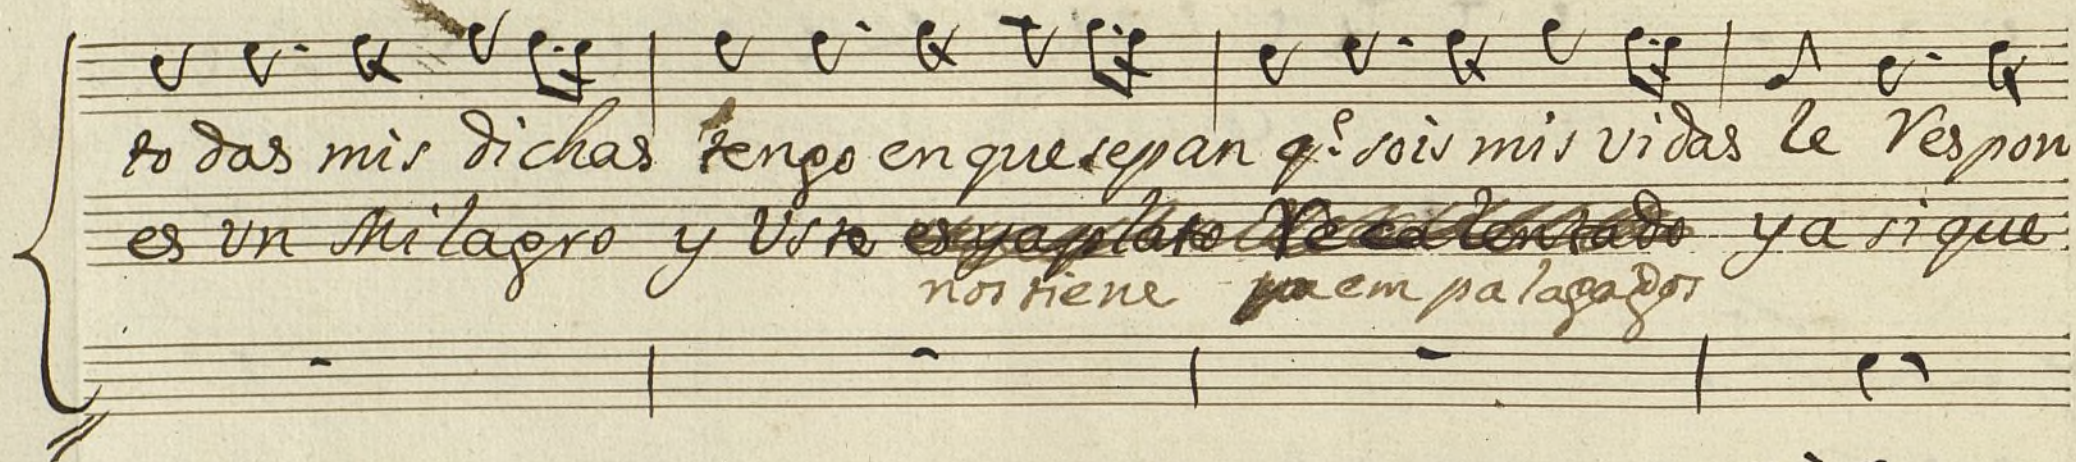 to das mis dichas tengo en que sepan q.e sois mis vidas le Respon
es un Milagro y Uste es ya plato Recalentado y a si que
nos tiene ya em palagados